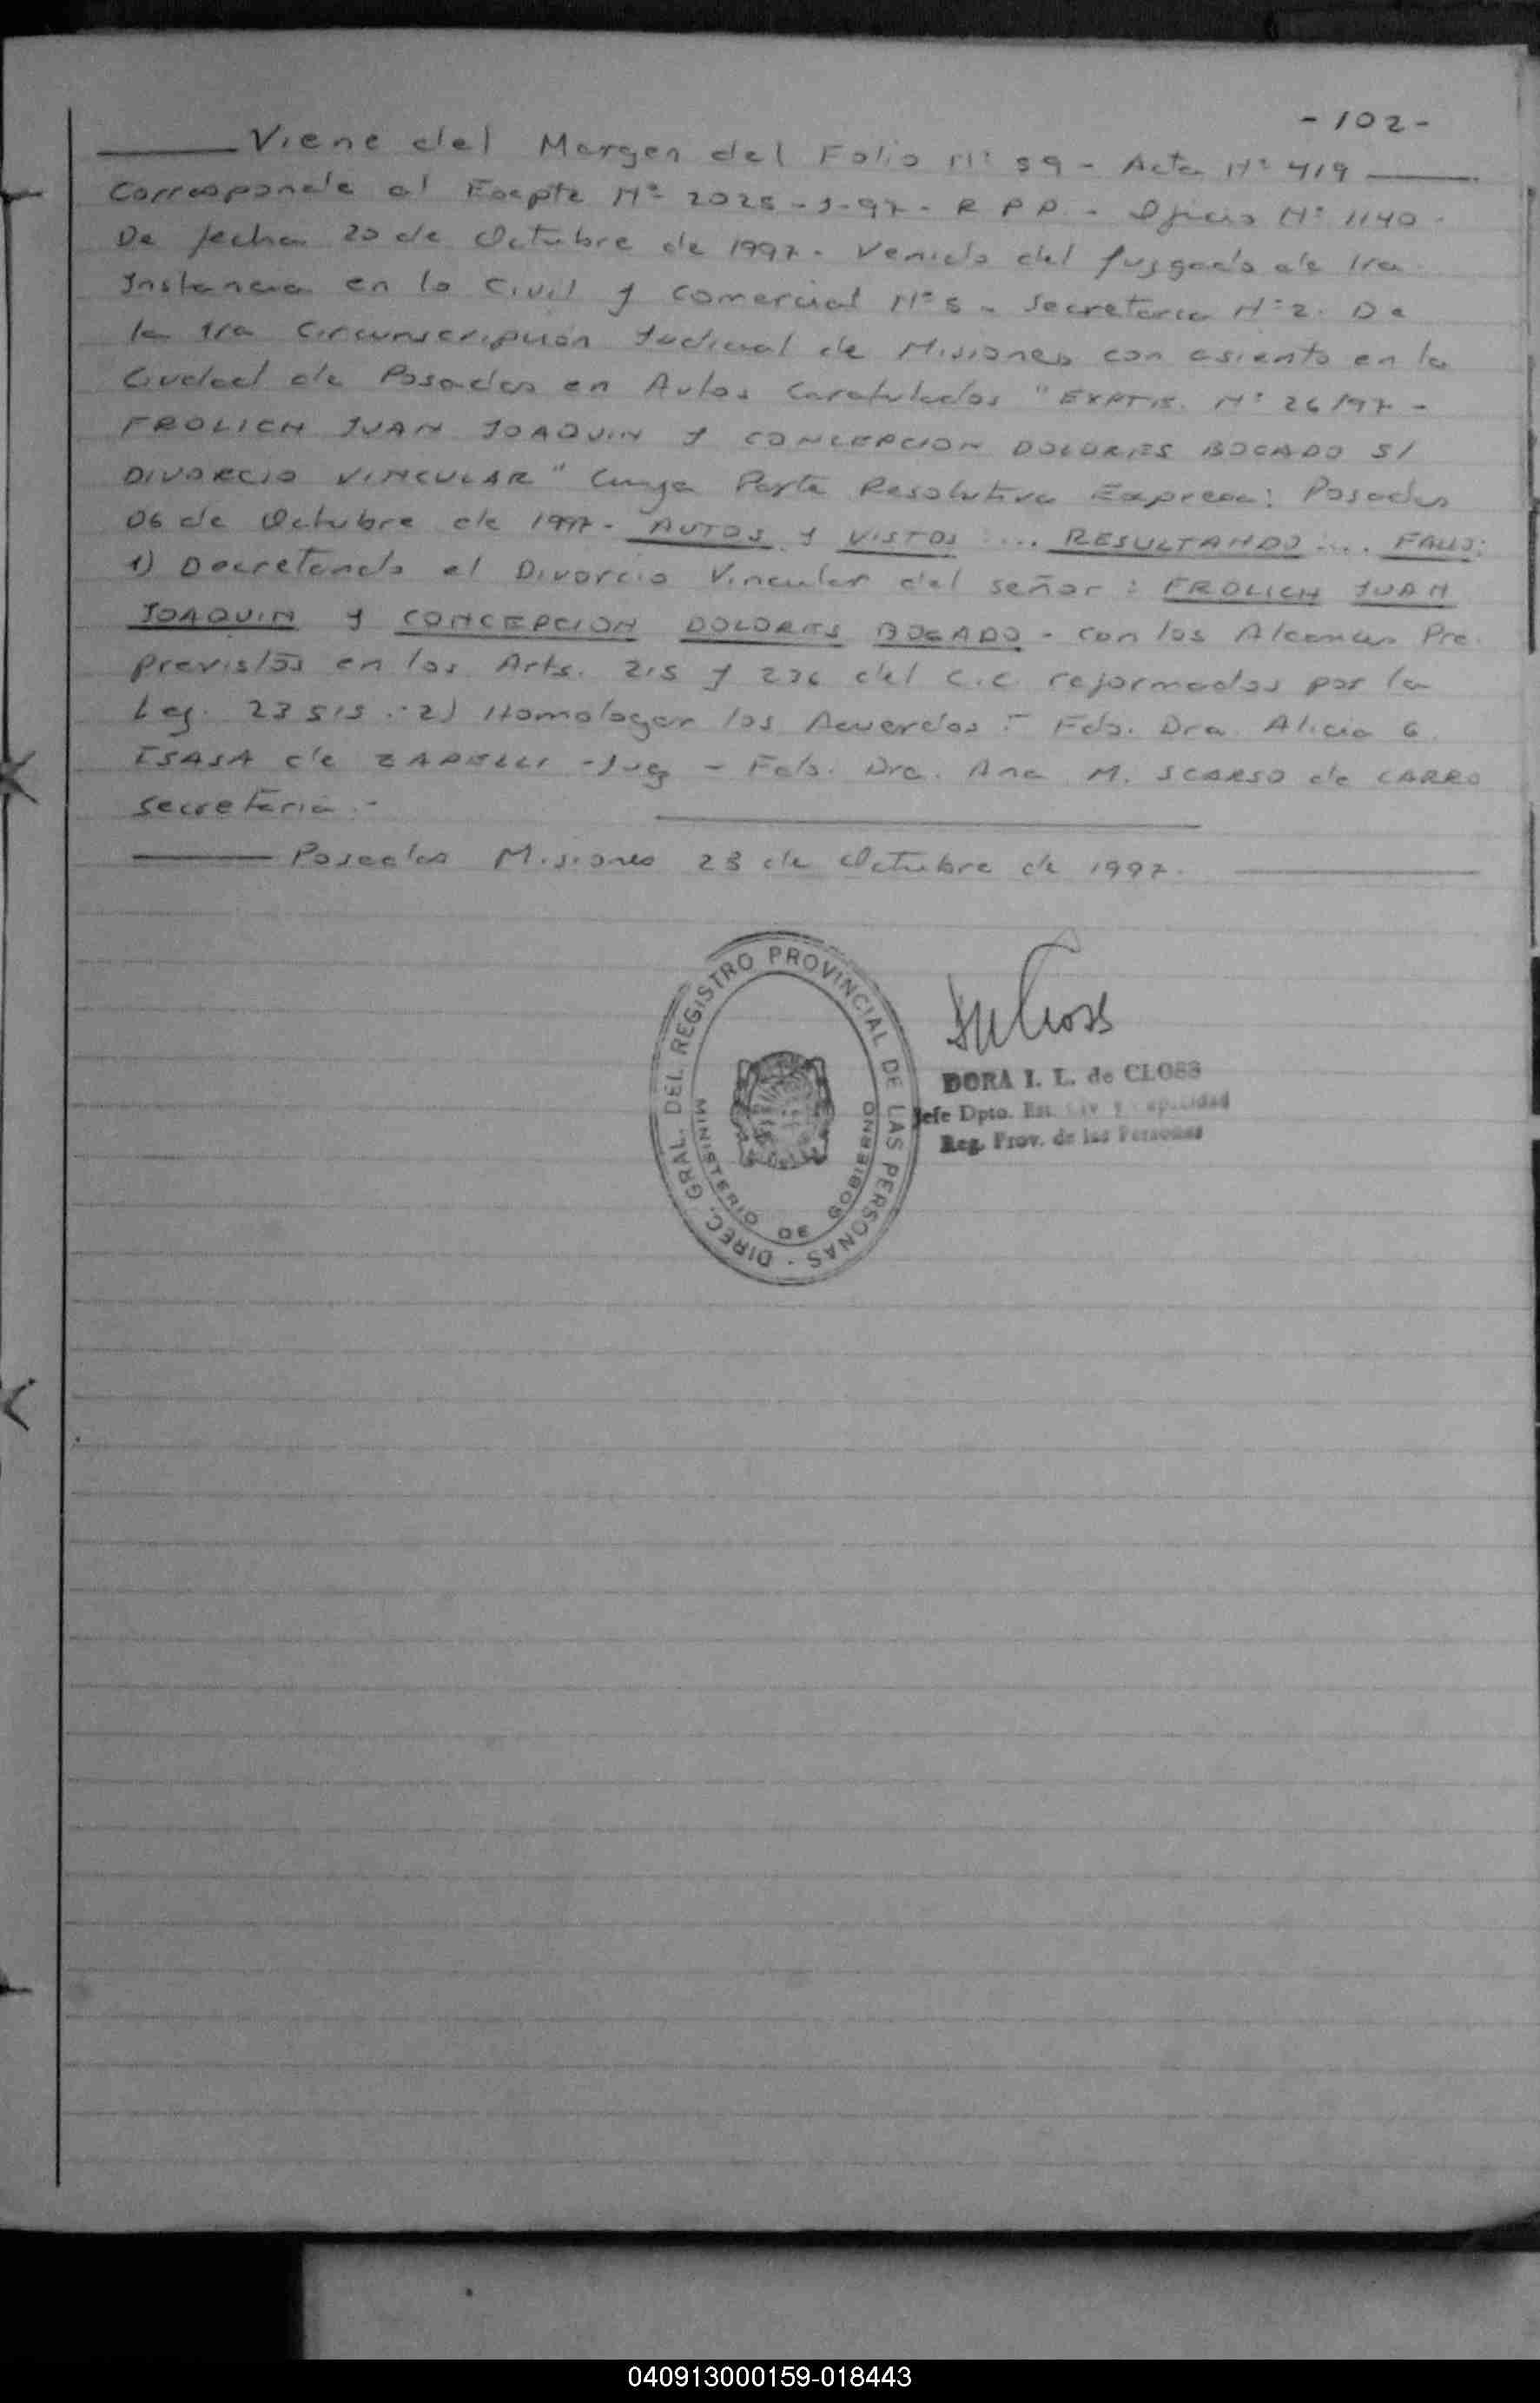 - 102 -
Viene del Margen del Folio Nº 59 - Acta Nº 419
Corresponde al Exepte Nº 2025 - J - 97 - R P P. - Oficio Nº 1140 -
De fecha 20 de Octubre de 1997 - Venido del Juzgado de 1ra
Instancia en lo Civil y Comercial Nº 5 - Secretaria Nº 2. De
la 1ra Circunscripción Judicial de Misiones con asiento en la
Ciudad de Posadas en Autos Caratulados "EXPTE. Nº 26/97 -
FROLICH JUAN JOAQUIN Y CONCEPCION DOLORES BOGADO S/
DIVORCIO VINCULAR" Cuya Parte Resolutiva Expresa: Posadas
06 de Octubre de 1997 - AUTOS Y VISTOS: ... RESULTANDO: ... FALLO:
1) Decretando el Divorcio Vincular del señor: FROLICH JUAN
JOAQUIN Y CONCEPCION DOLORES BOGADO - con los Alcances Pre.
previstos en los Arts. 215 y 236 del C.C. reformados por la
Ley. 23515 .- 2) Homologar los Acuerdos :- Fdo. Dra. Alicia G.
ISASA de ZAPELLI - Juez - Fdo. Dra. Ana M. SCARSO de CARRO
secretaria .-
Posadas Misiones 23 de Octubre de 1997.
DIREC. GRAL. DEL REGISTRO PROVINCIAL DE LAS PERSONAS -
MINISTERIO DE GOBIERNO
DORA I. L. de CLOSS
Jefe Dpto. Est. Civ y Capacidad
Reg. Prov. de las Personas
040913000159-018443